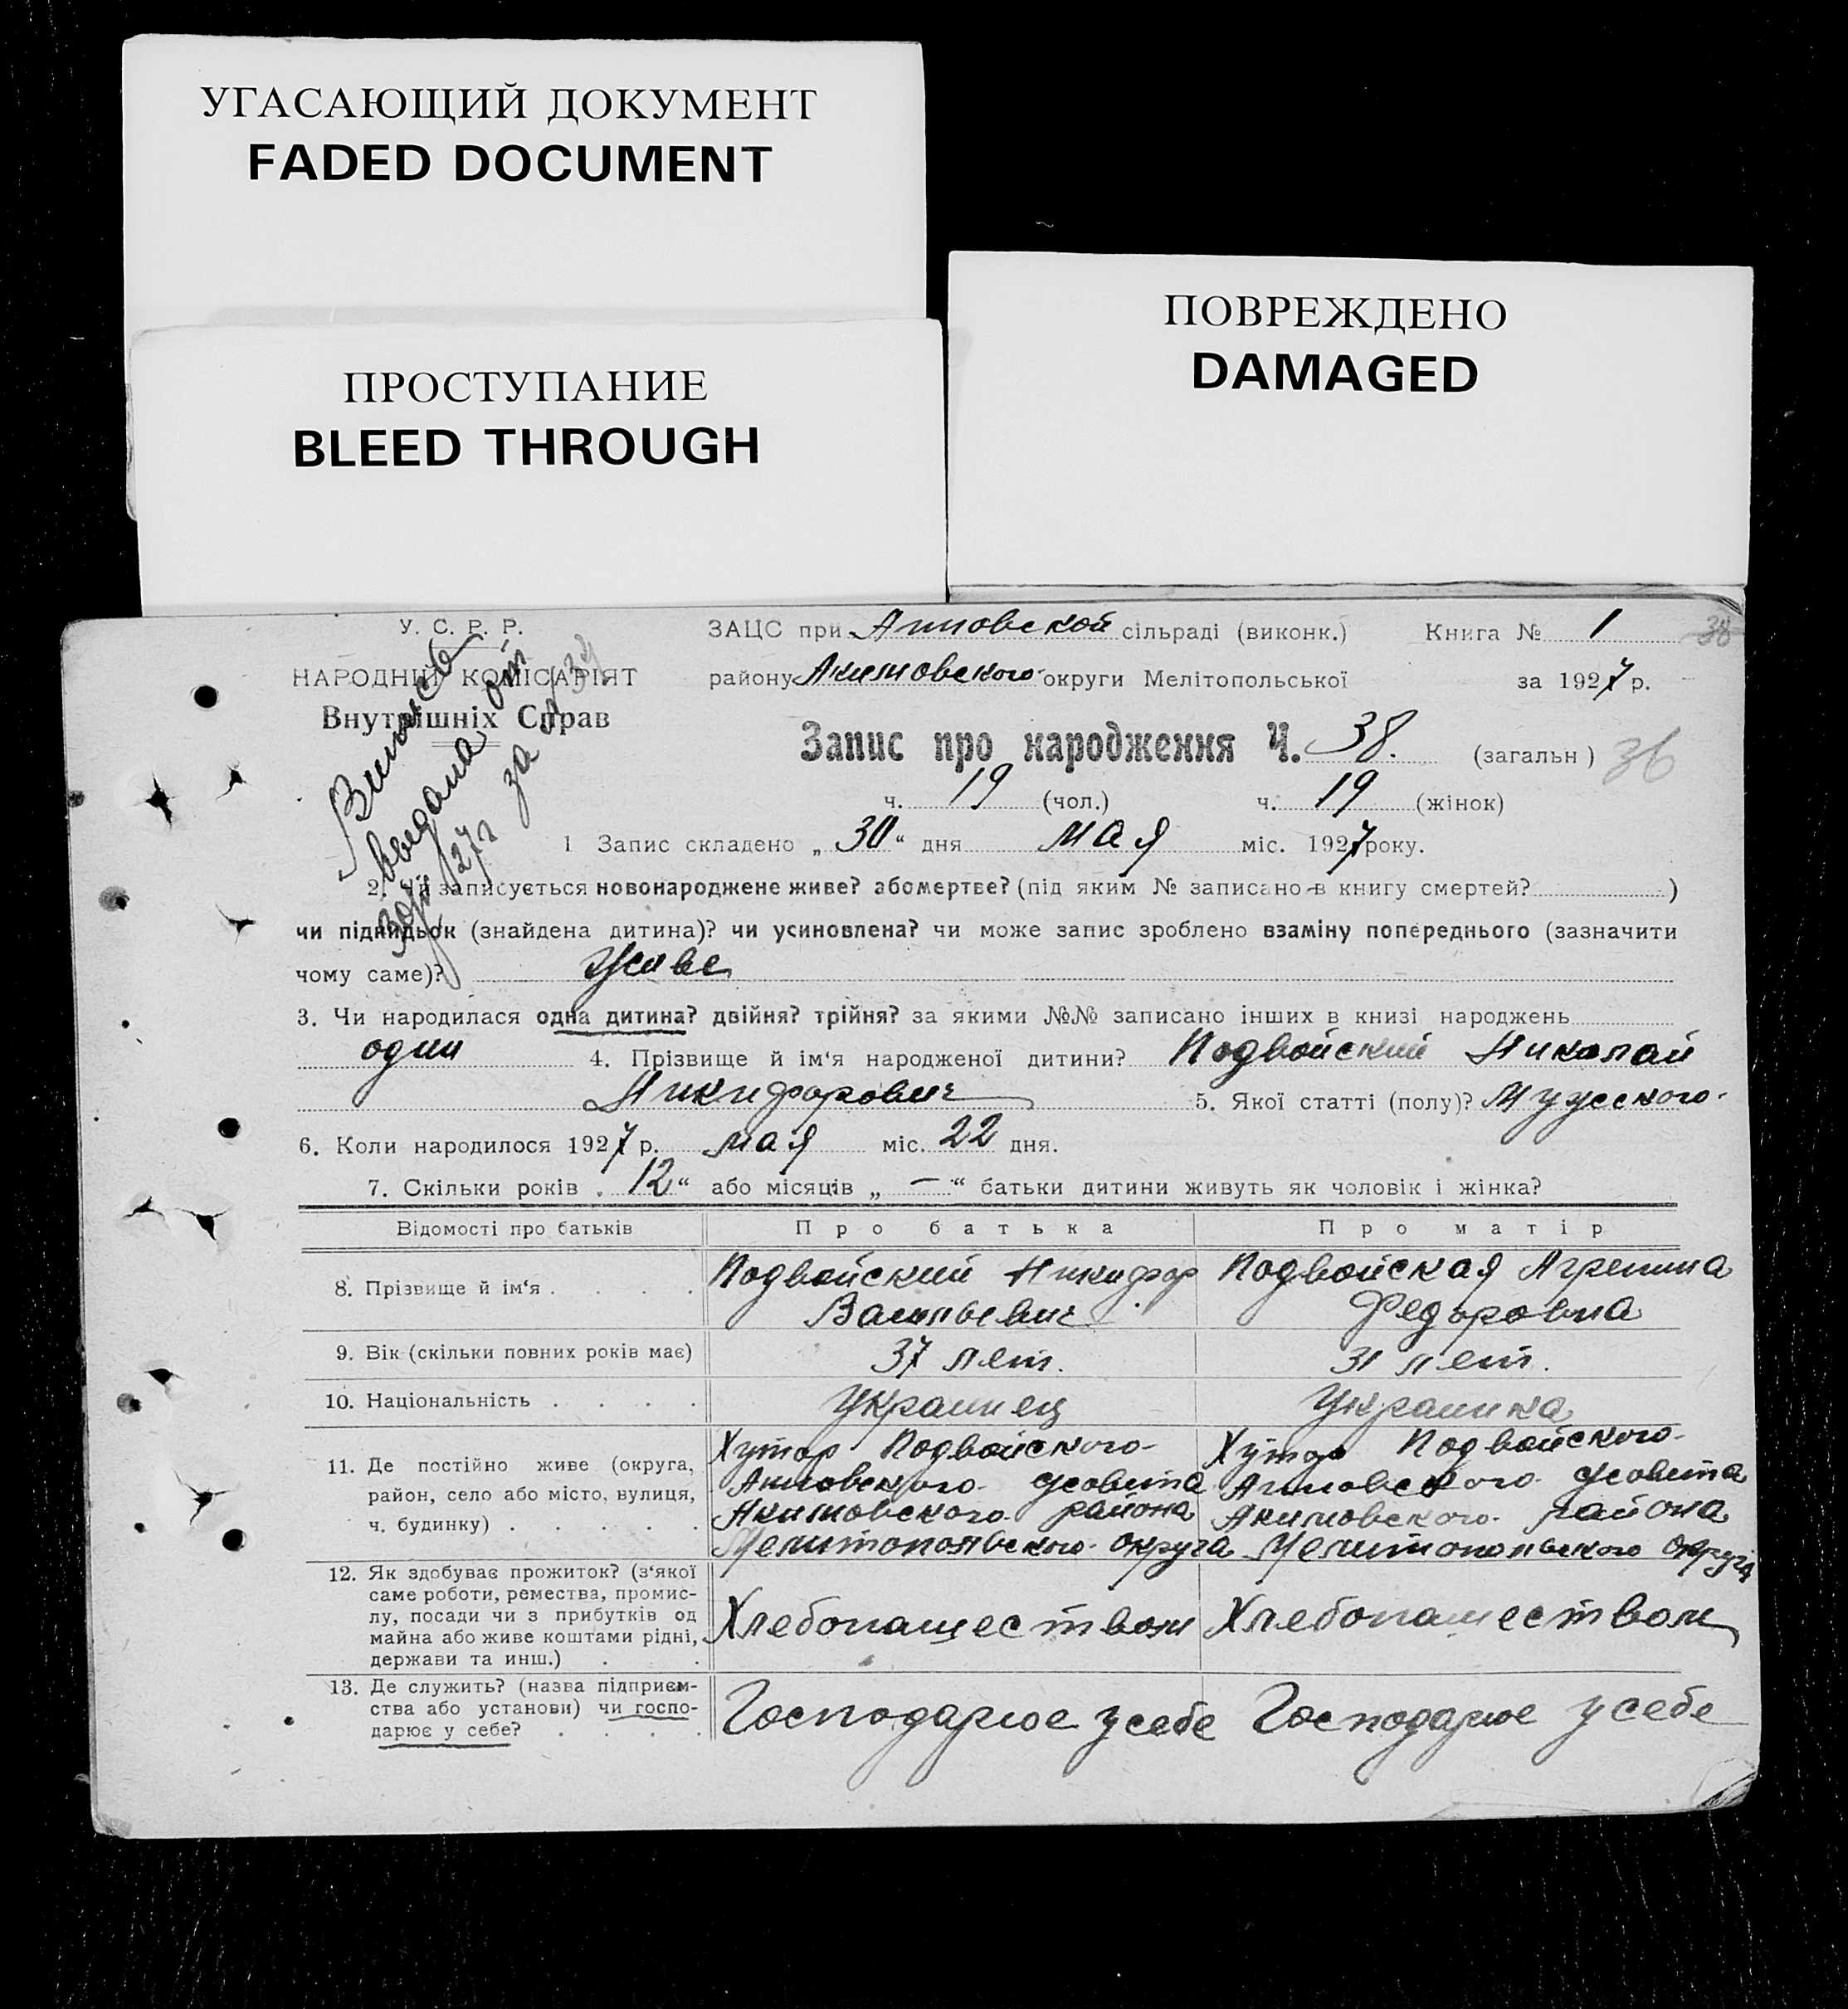 УГАСАЮЩИЙ ДОКУМЕНТ
FADED DOCUMENT
ПРОСТУПАНИЕ
BLEED THROUGH
ПОВРЕЖДЕНО
DAMAGED
У. С. Р. Р.
НАРОДНІЙ КОМІСАРІЯТ
Внутрішніх Справ
Выпись
выдана от
за
ЗАЦС при Анновской сільраді (виконк.) Книга № 1 38
району Акимовского округи Мелітопольської за 1927 р.
Запис про народження Ч. 38. (загальн) 36
ч. 19 (чол.) ч. 19 (жінок)
1 Запис складено „30“ дня мая міс. 1927 року.
2. Чи записується новонароджене живе? або мертве? (під яким № записано в книгу смертей? )
чи підкидьок (знайдена дитина)? чи усиновлена? чи може запис зроблено взаміну попереднього (зазначити
чому саме)? Живе
3. Чи народилася одна дитина? двійня? трійня? за якими №№ записано інших в книзі народжень
один 4. Прізвище й ім‘я народженої дитини? Подвойский Николай
Никифорович 5. Якої статті (полу)? Мужского
6. Коли народилося 1927 р. мая міс. 22 дня.
7. Скільки років „12“ або місяців „—“ батьки дитини живуть як чоловік і жінка?
Відомості про батьків Про батька Про матір
8. Прізвище й ім‘я . . . . Подвойский Никифор Васильевич Подвойская Агрепина Федоровна
9. Вік (скільки повних років має) 37 лет. 31 лет.
10. Національність . . . . Украинец Украинка
11. Де постійно живе (округа, район, село або місто, вулиця, ч. будинку) . . . . .
Хутор Подвойского
Анновского с/совета
Акимовского района
Мелитопольского округа
Хутор Подвойского
Анновского с/совета
Акимовского района
Мелитопольского округа
12. Як здобуває прожиток? (з‘якої
саме роботи, ремества, промис-
лу, посади чи з прибутків од
майна або живе коштами рідні,
держави та инш.) . .
Хлебопашеством Хлебопашеством
13. Де служить? (назва підприєм-
ства або установи) чи госпо-
дарює у себе? . . . .
Господарює у себе Господарює у себе